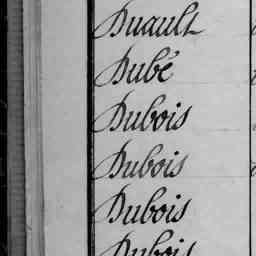 Duault
Dubé
Dubois
Dubois
Dubois
Dubois